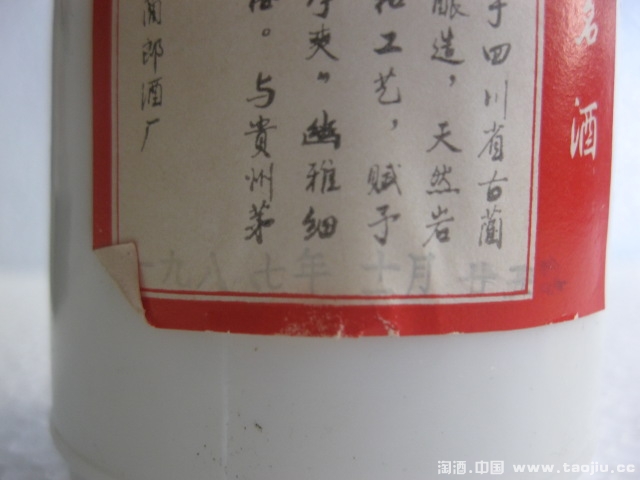 名酒
于四川省古蔺
酿造，天然岩
和工艺，赋予
净爽”幽雅细
。与贵州茅
蔺郎酒厂
一九八七年十二月廿三
淘酒.中国 www.taojiu.cc